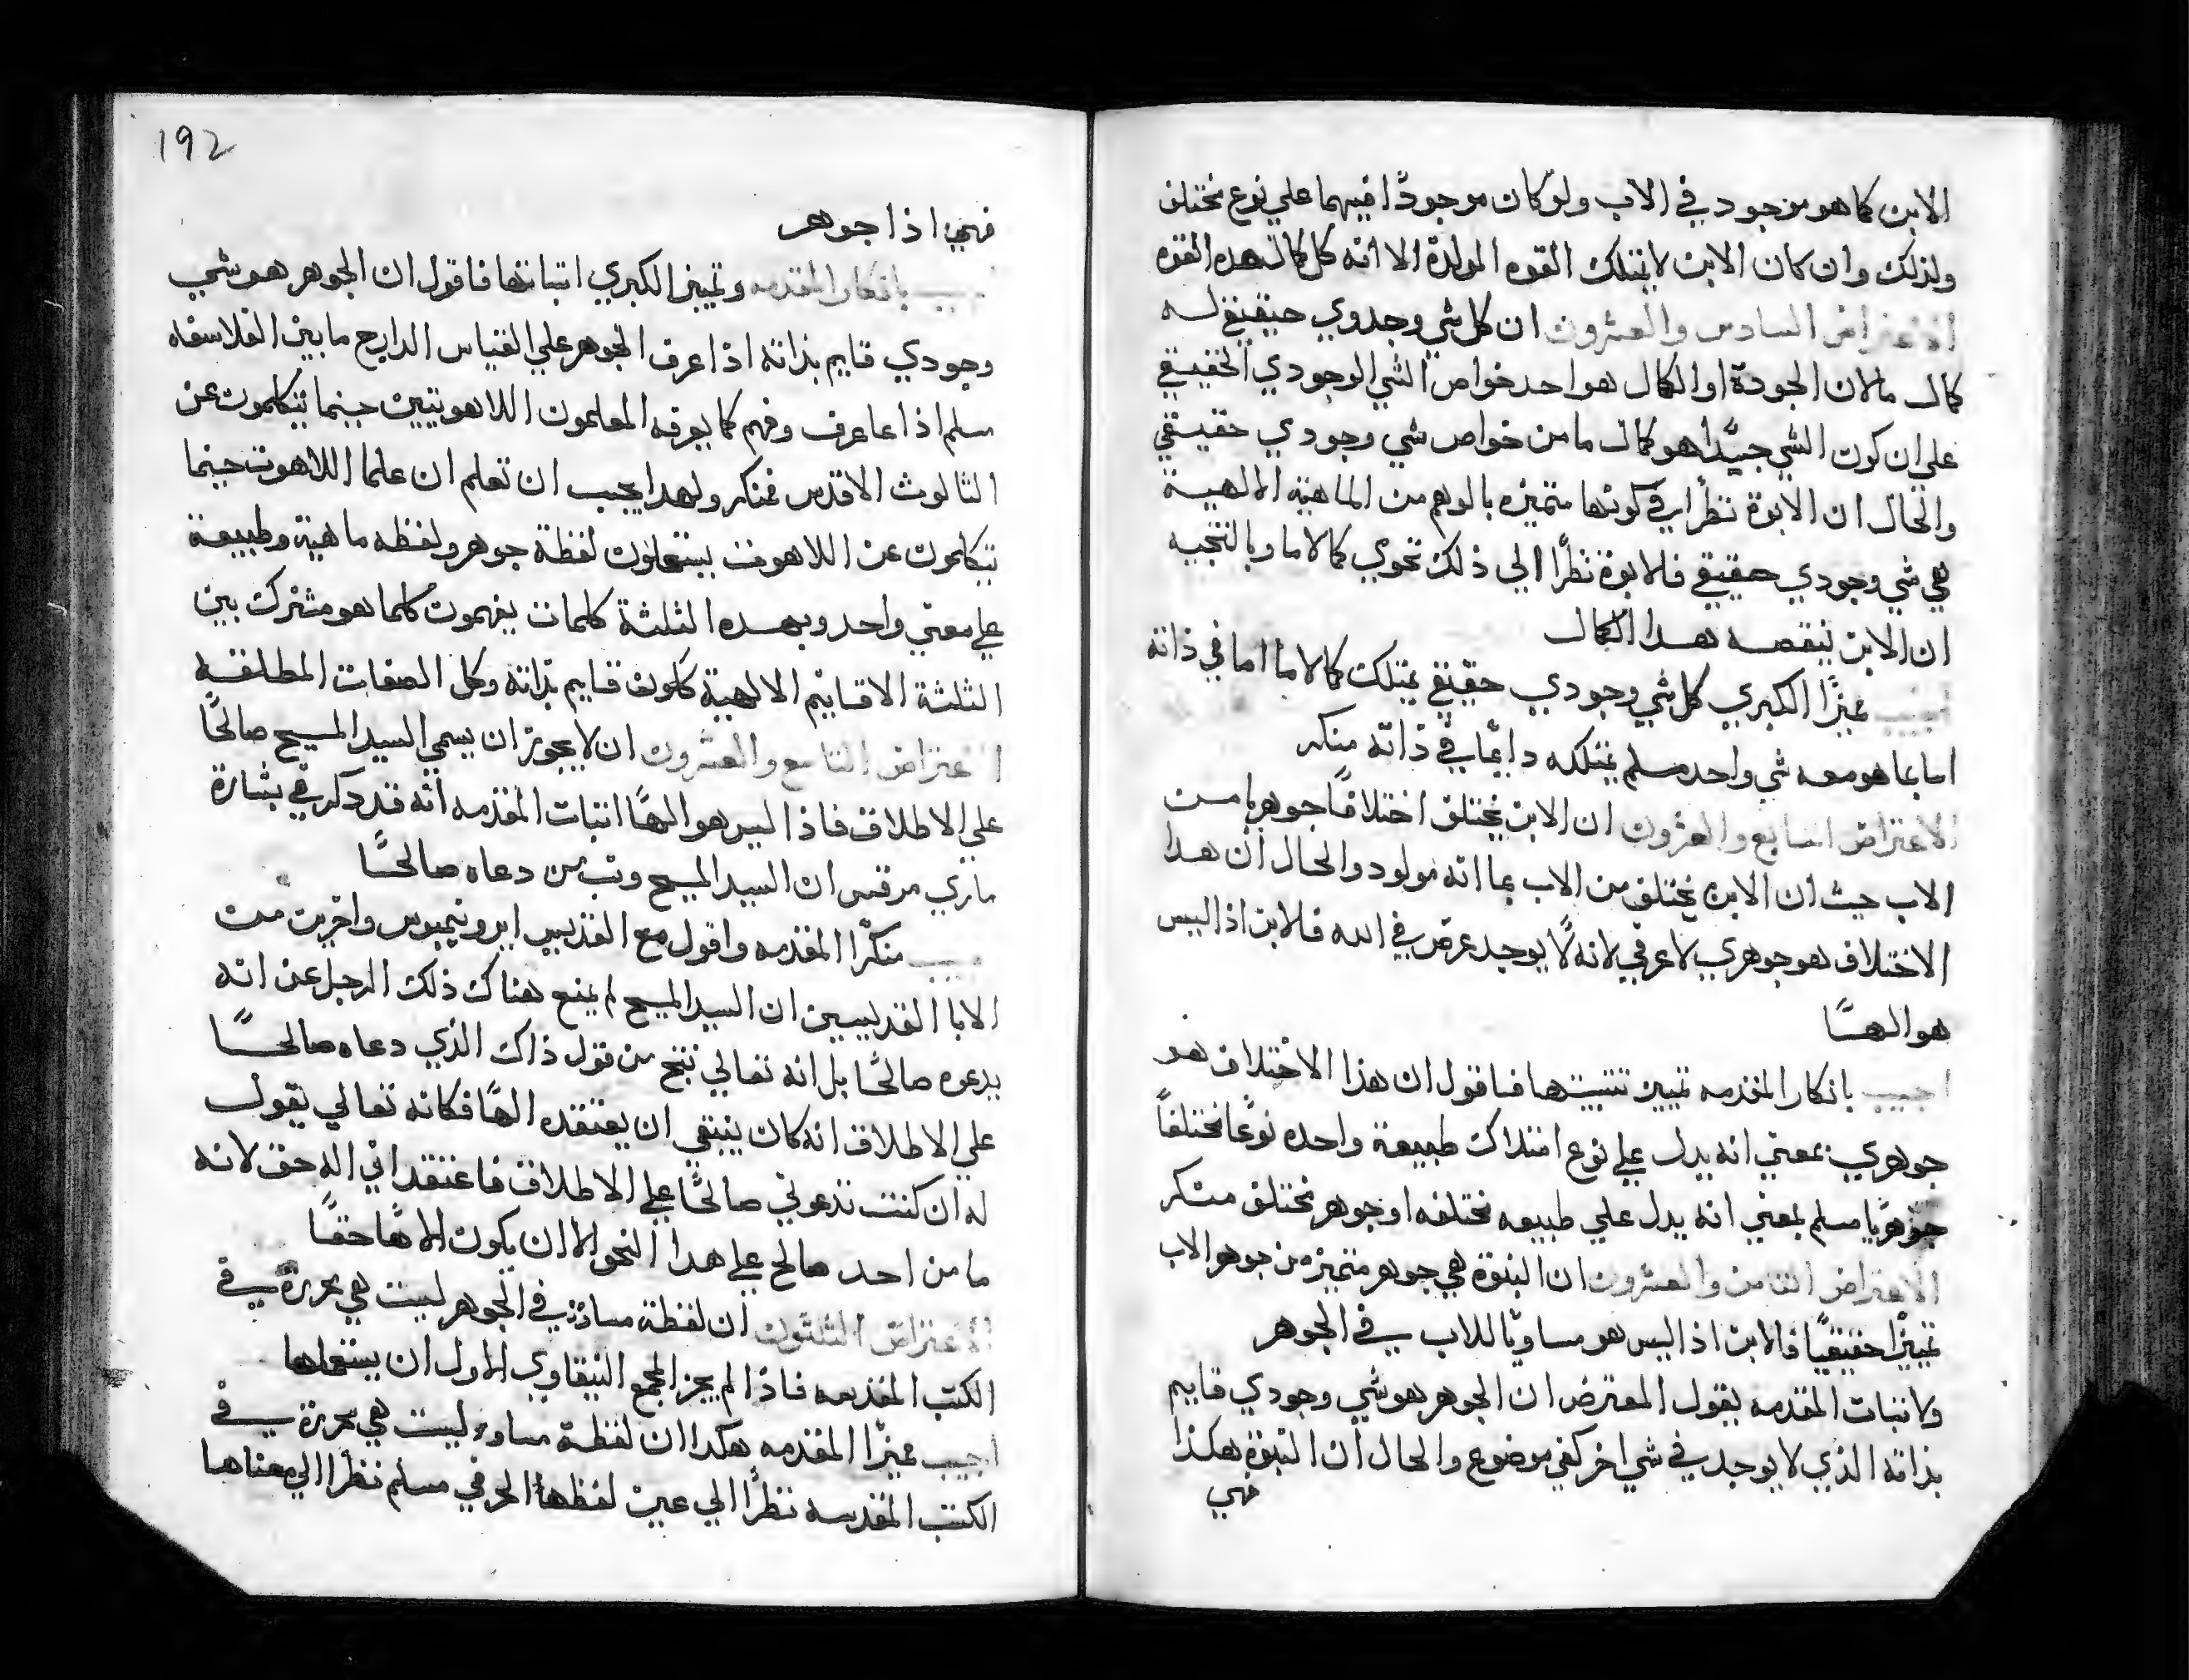 الابن كما هو موجود في الاب ولو كان موجودًا فيهما علي نوع مختلف
ولذلك وان كان الابن لا يمتلك القوه المولدة الا انه كل كمال هده القوه
الاعتراض السادس والعشرون ان كل شي وجدوي حيقيقي له
كمال ما لان الجودة او الكمال هو احد خواص الشي الوجودي الحقيقي
علي ان كون الشي جيدًا هو كمال ما من خواص شي وجودي حقيقي
والحال ان الابوة نظرًا في كونها متميزه بالوهم من الماهية الالهية
هي شي وجودي حقيقي فلابوة نظرًا الي ذلك تحوي كمالا ما وبالنتجيه
ان الابن ينقصه هدا الكمال
اجيب مميزًا الكبري كل شي وجودي حقيقي يمتلك كمالا ما اما في ذاته
اما بما هو معه شي واحد مسلم يمتلكه دايمًا في ذاته منكر
الاعتراض السابع والعشرون ان الابن يختلف اختلافًا جوهريا من
الاب حيث ان الابن يختلف من الاب بما انه مولود والحال ان هدا
الاختلاف هو جوهري لا عرضي لانه لا يوجد عرض في الله فلابن اذا ليس
هو الهًا
اجيب بانكار المقدمه تمييز تتبيتها فاقول ان هذا الاختلاف هو
جوهري بمعني انه يدل علي نوع امتلاك طبيعة واحده نوعًا مختلفًا
جوهريًا مسلم بمعني انه يدل علي طبيعه مختلفه او جوهر مختلف منكر
الاعتراض الثامن والعشرون ان البنوة هي جوهر متميزه من جوهر الاب
تمييزًا حقيقيًا فالابن اذا ليس هو مساويًا للاب في الجوهر
ولاتبات المقدمه يقول المعترض ان الجوهر هو شي وجودي قايم
بذاته الذي لا يوجد في شي اخر كفي موضوع والحال ان البنوة هكذا
فهي
192
فهي اذا جوهر
اجيب بانكار المقدمه وتمييز الكبري اتباتها فاقول ان الجوهر هو شي
وجودي قايم بذاته اذا عرف الجوهر علي القياس الدارج ما بين الفلاسفاه
مسلم اذا ما عرف وفهم كما يعرفه المعلمون اللاهوتيين حينما يتكلمون عن
الثالوث الاقدس فمنكر ولهدا يجب ان تعلم ان علما اللاهوت حينما
يتكلمون عن اللاهوت يستعملون لفظة جوهر ولفظه ماهية وطبيعة
علي معني واحد وبهده الثلثة كلمات يفهمون كلما هو مشترك بين
الثلثة الاقانيم الالهية ككون قايم بذاته وكل الصفات المطلقه
الاعتراض التاسع والعشرون ان لا يجوز ان يسمي السيد المسيح صالحًا
علي الاطلاق فاذا ليس هو الهًا اتبات المقدمه انه قد دكر في بشارة
ماري مرقس ان السيد المسيح وبخ من دعاه صالحًا
اجيب منكرًا المقدمه واقول مع القديس ايرونيموس واخرين من
الابا القديسين ان السيد المسيح لم يمنع هناك ذلك الرجل عن انه
يدعوه صالحًا بل انه تعالي نتج من قول ذاك الذي دعاه صالحًا
علي الاطلاق انه كان ينبغي ان يعتقده الهًا فكانه تعالي يقول
له ان كنت تدعوني صالحًا علي الاطلاق فاعتقد اني اله حق لانه
ما من احد صالح علي هدا النحو الا ان يكون الاهًا حقًا
الاعتراض الثلثون ان لفظة مساوي في الجوهر ليست هي محررة في
الكتب المقدسه فاذا لم يجز المجمع النيقاوي الاول ان يستعملها
اجيب مميزًا المقدمه هكدا ان لفظة مساوي ليست هي محررة في
الكتب المقدسه نظرًا الي عين لفظها الحرفي مسلم نظرًا الي معناها